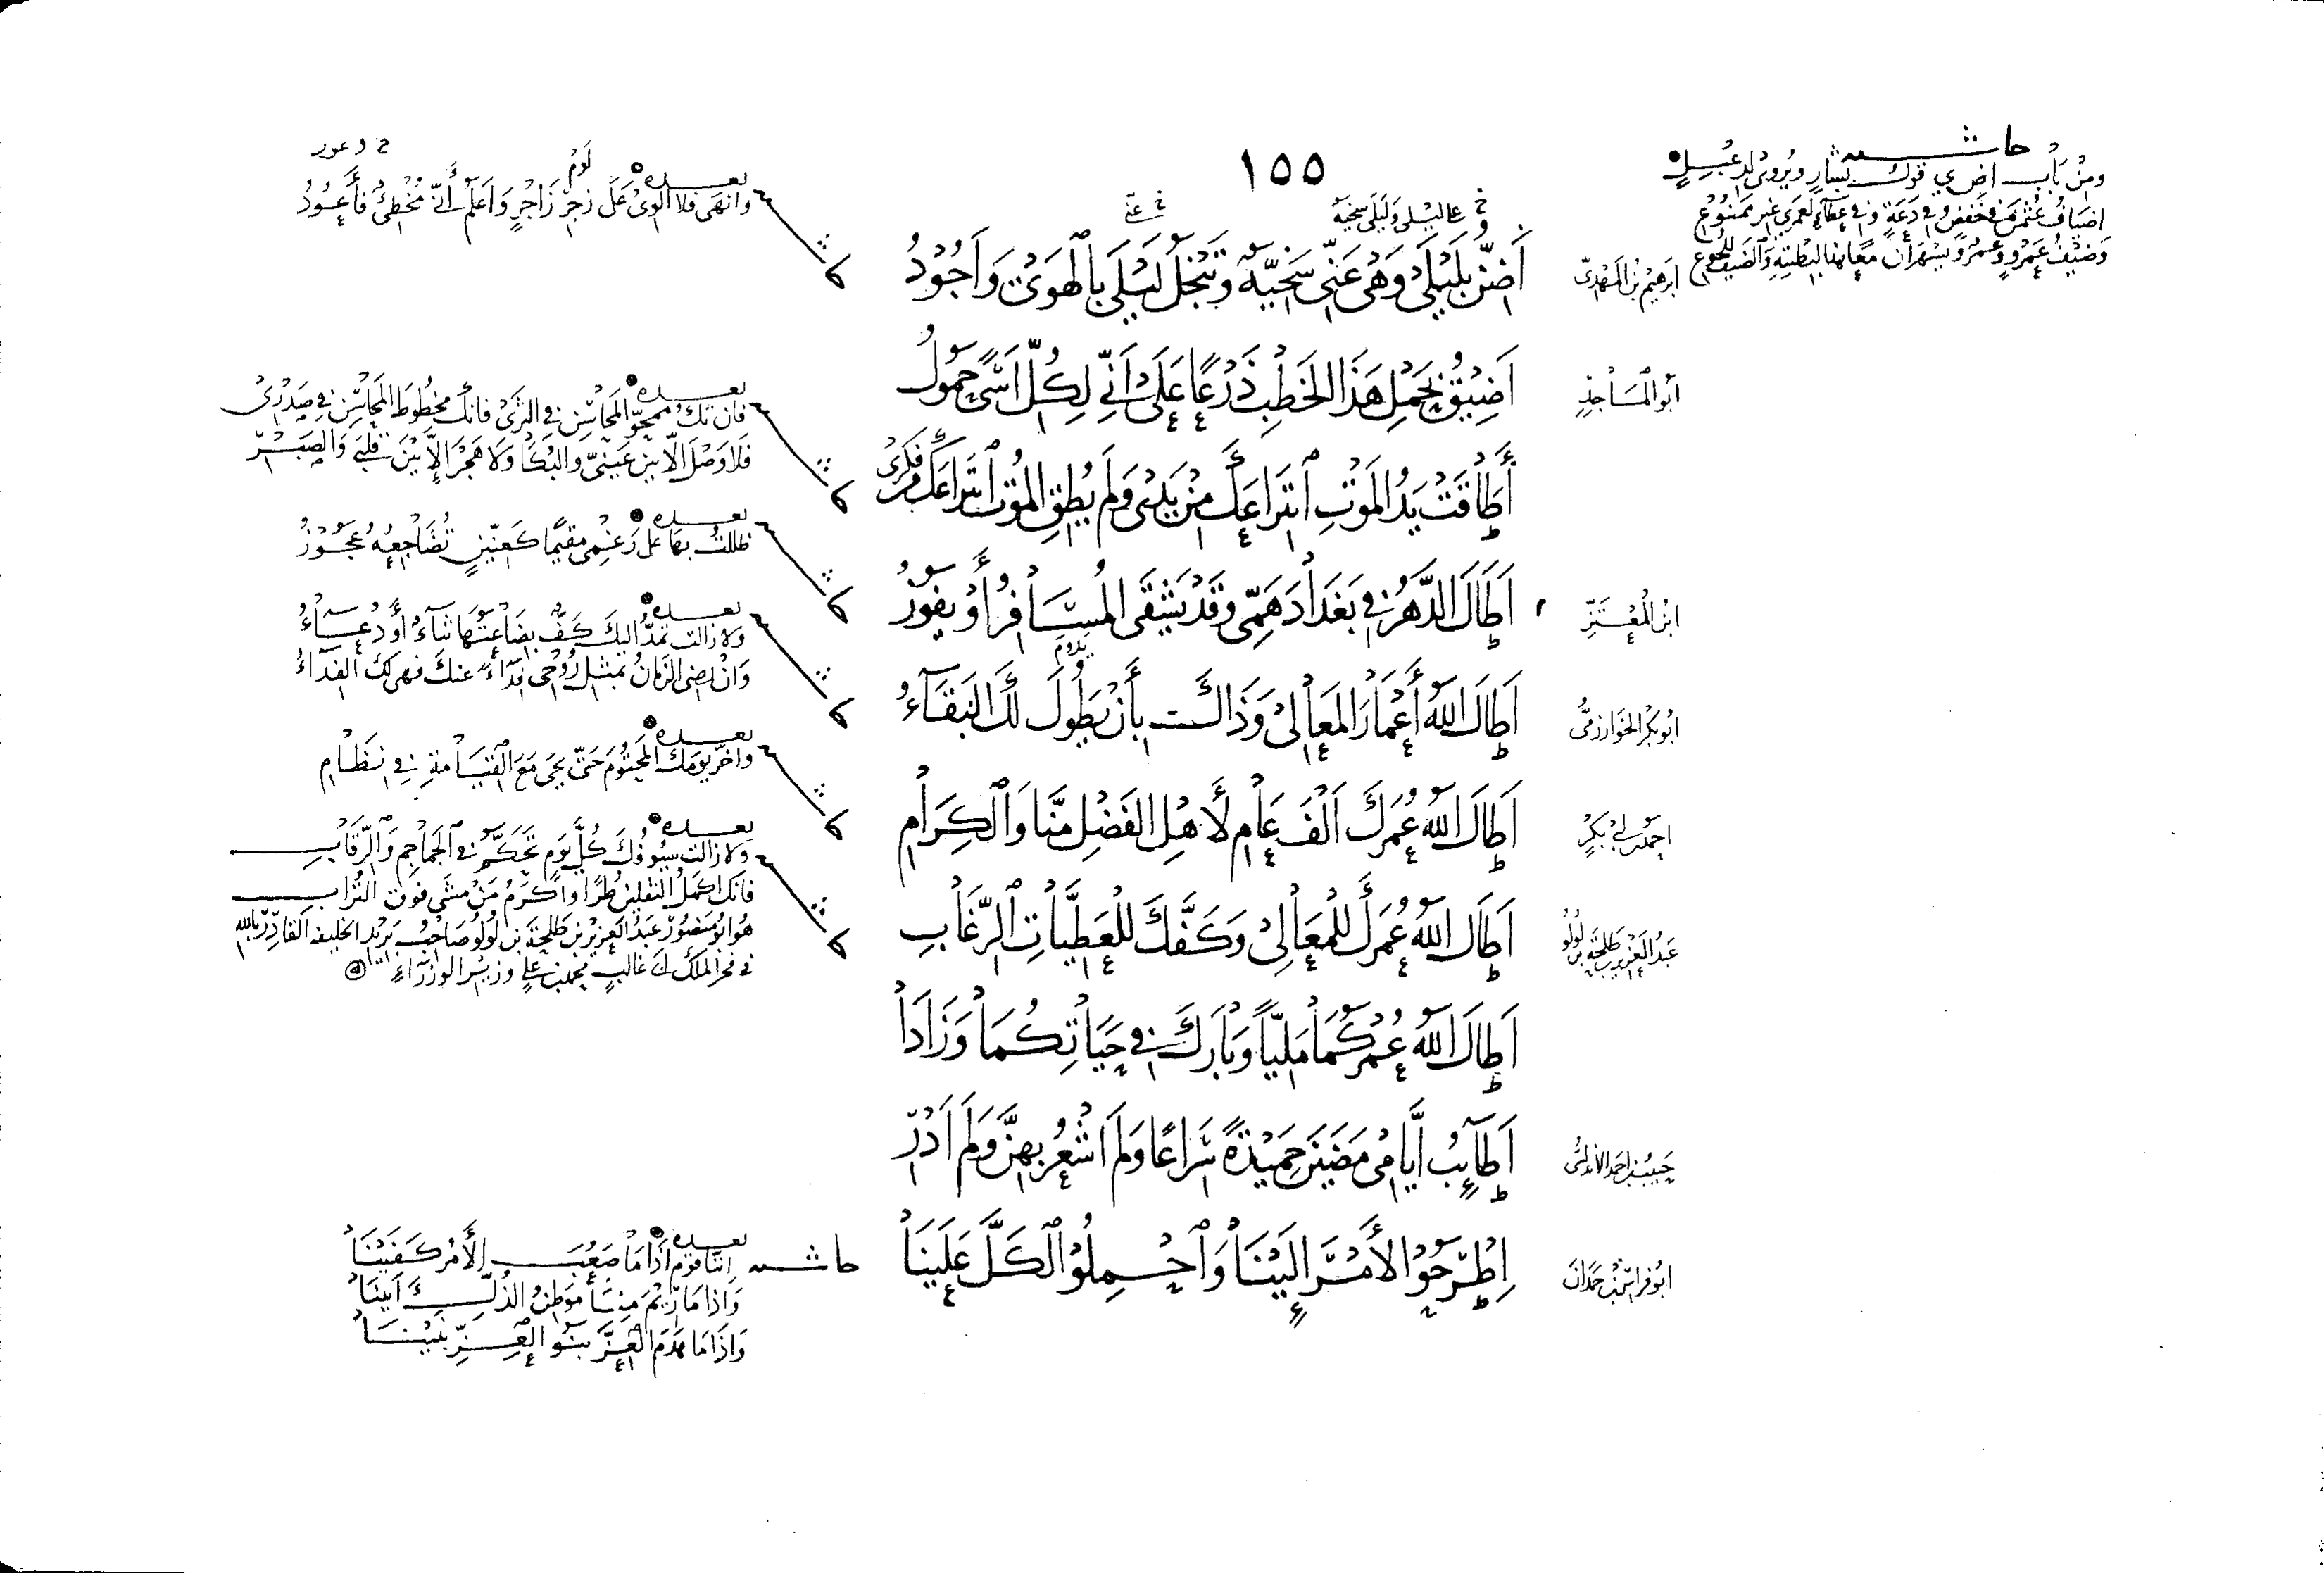 ١٥٥
حاشية
ومن باب اضـ قول بشار ويروى لدعبل
اضياف عثمن في خفض وفي دعة وفي عطاء لعمري غير ممنوع
وضيف عمرو وعمرو يسهران معا هذا لبطنته والضيف للجوع
ابرهيم بن المهدي
أَضنّ بليلى وهي عنّي سخيّة وتبخل ليلى بالهوى وأجود
بعده
وانهى فلا الوي على زجر زاجر واعلم أنّي مخطئ فأعود
لوم
أبو المساجد
أضيق بحمل هذا الخطب ذرعًا على أنّي لكلّ أسًى حمول
أطاقت يد الموت انتزاعك من يدي ولم يطق الموت انتزاعك من فكري
بعده
فان تك ممحوّ المحاسن في الثرى فانك مخطوط المحاسن في صدري
فلا وصل الّا بين عينيّ والبكا ولا هجر الّا بين قلبي والصبر
ابن المعتزّ
أطال الدهر في بغداد همّي وقد يشقى المسافر أو يفوز
بعده
ظللت بها على رغمي مقيمًا كعنّين تضاجعه عجوز
ابو بكر الخوارزمي
أطال الله أعمار المعالي وذاك بأن يطول لك البقاء
يدوم
بعده
ولا زالت تمدّ اليك كفّ بضاعتها ثناء أو دعاء
وان رضي الزمان بمثل روحي فداء عنك فهي لك الفداء
احمد بن ابي بكر
أطال الله عمرك ألف عام لأهل الفضل منّا والكرام
بعده
واخّر يومك المحتوم حتى يجي مع القيامة في نظام
عبد العزيز بن طلحة بن لولو
أطال الله عمرك للمعالي وكفّك للعطيّات الرّغاب
بعده
ولا زالت سيوفك كلّ يوم تحكّم في الجماجم والرّقاب
فانك اكمل الثقلين طرًّا واكرم من مشى فوق التراب
هو ابو منصور عبد العزيز بن طلحة بن لولو صاحب بريد الخليفه القادر بالله
في فخر الملك ابي غالب محمد بن علي وزير الوزراء
أطال الله عمركما مليًّا وبارك في حياتكما وزادا
حبيب بن احمد الاندلسي
أطايب أيامي مضين حميدة سراعًا ولم اشعر بهنّ ولم أدر
ابو فراس بن حمدان
اطرحوا الأمر إلينا واحملوا الكلّ علينا
حاشية
بعده
اننا قوم اذا ما صعب الأمر كفينا
واذا ما ريم منا موطن الذلّ أبينا
واذا ما هدم العزّ بنو العزّ بنينا